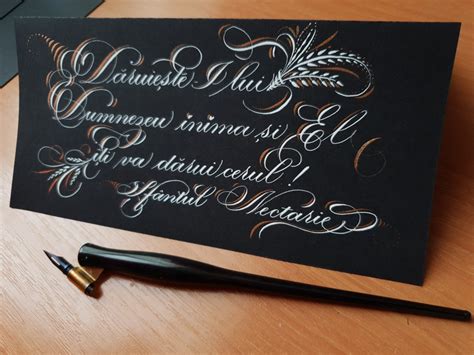 Dăruiește-I lui
Dumnezeu inima și El
îți va dărui cerul!
Sfântul Nectarie